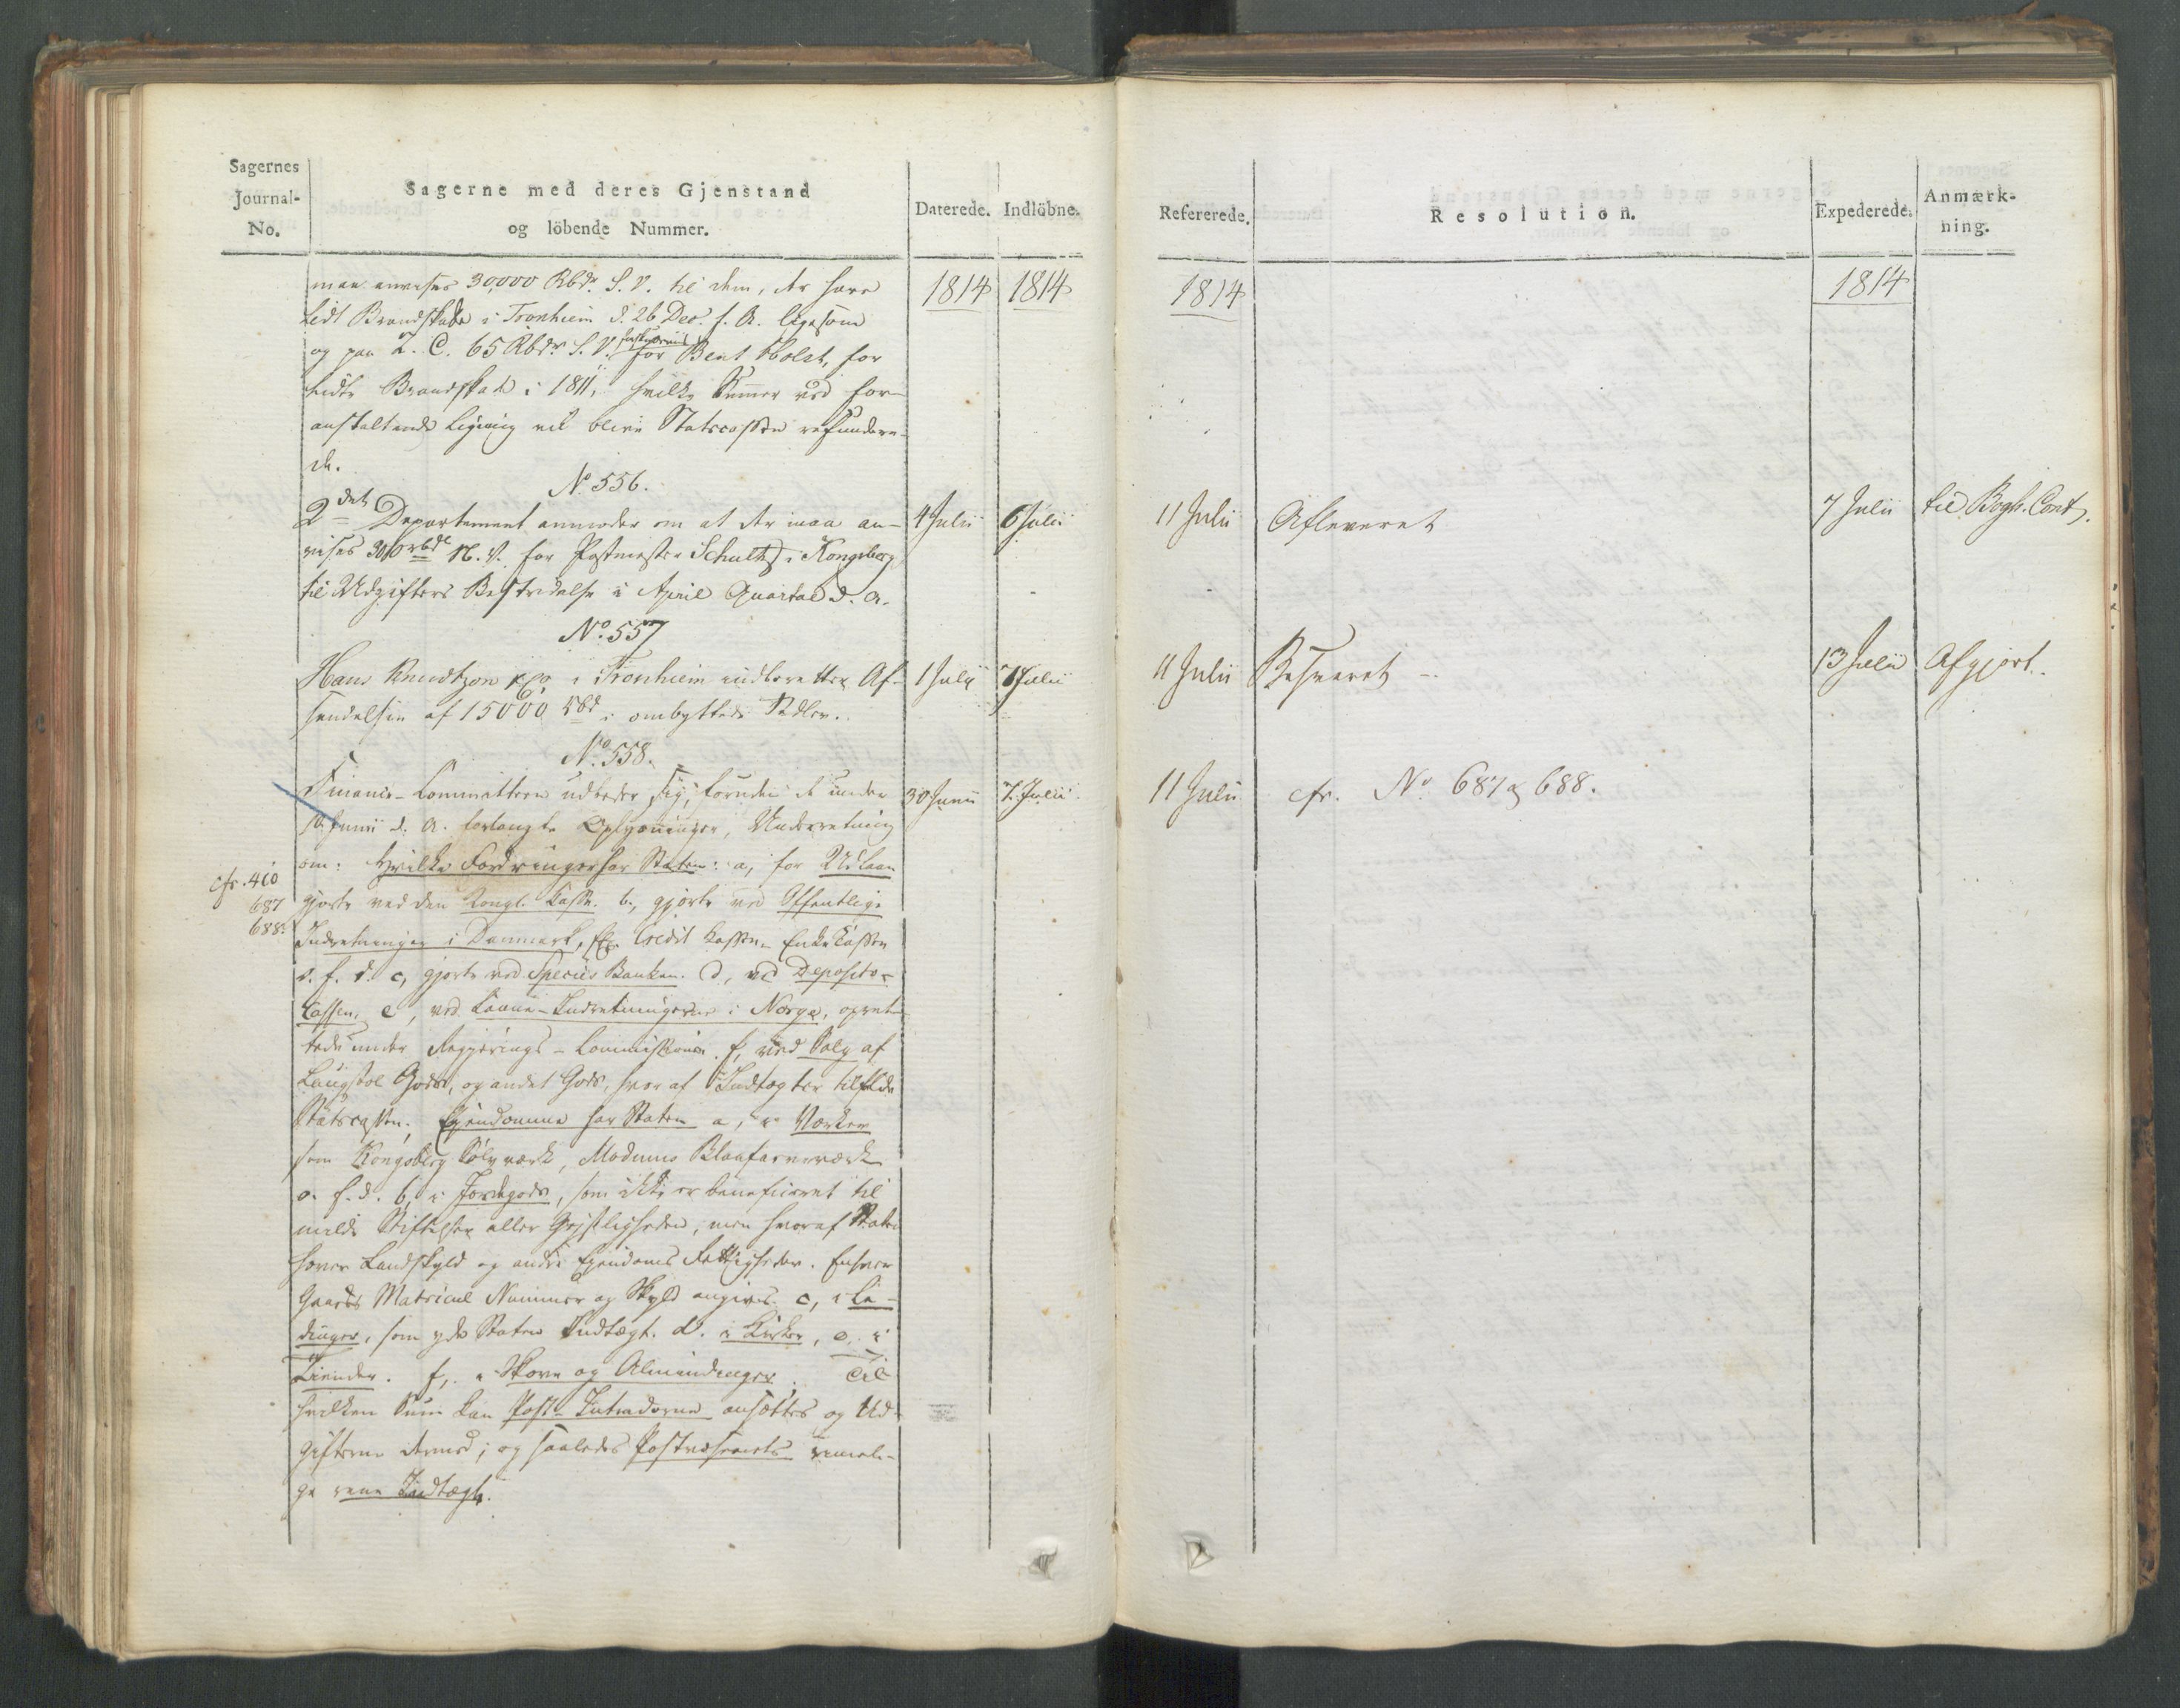 Sagernes
Journal-
No.
Sagerne med deres Gjenstand
og löbende Nummer.
Daterede.
Indlöbne.
maa anvises 30,000 Rbdr S. V. til dem, der have
lidt Brandskade i Tronhiem d. 26 Dec. f. A. ligesom
og paa Z. C. 65 Rbdr S. V. for Bent Holst, for
lidte Brandskade i 1811, hvilke Summer ved for-
anstaltende Ligning vil blive Statscassen refundere-
de.
1814
1814
No 556.
2det Departement anmoder om at der maa an-
vises 300 rbdl N. V. for Postmester Schultz i Kongsberg
til Udgifters Bestridelse i April Quartal d. A.
4 Julii
6 Julii
No. 557
Hans Knudtzon & Co i Tronhiem indberetter Af-
sendelsen af 15000 rbd i ombyttede Sedler.
1 Julii
7 Julii
No. 558.
Finance-Committeen udbeder sig, foruden de under
10. Junii d. A. forlangte Oplysninger, Underretning
om: Hvilke Fordringer har Staten: a, for Udlaan
30 Junii
7. Julii
cfr. 410
687
688.
gjorte ved den Kongl. Kasse. b, gjorte ved Offentlige
Indretninger i Danmark, Ex. Credit Kassen, Enke Kassen
o. s. v. c, gjorte ved Species Banken. d, ved Deposito-
Cassen, e, ved Laane-Indretningerne i Norge, opret-
tede under Regjerings-Commissionen. f, ved Salg af
Laugstol Gods, og andet Gods, hvor af Indtægter tilfaldt
Statscassen. Ejendomme har Staten a, i Værker
som Kongsberg Sölvværk, Modums Blaafarveværk
o. s. v. b, i Jordegods, som ikke er beneficeret til
milde Stiftelser eller Gejstligheden, men hvoraf Staten
hæver Landskyld og andre Ejendoms Rettigheder. Enhver
Gaards Matricul Nummer og Skyld angives. c, i Lei-
dinger, som yde Staten Indtægt. d. i Kirker, e. i
Tiender. f, i Skove og Almindinger. Til
hvilken Sum kan Post-Intraderne ansættes og Ud-
gifterne dermed; og saaledes Postvæsenets rimeli-
ge rene Indtægt.
Refererede.
Resolution.
Expederede.
Anmærk-
ning.
1814
1814
11 Julii
Afleveret
7 Julii
til Bogh. Cont.
11 Julii
Besvaret -
13 Julii
Afgjort.
11 Julii
cfr. No 687 og 688.